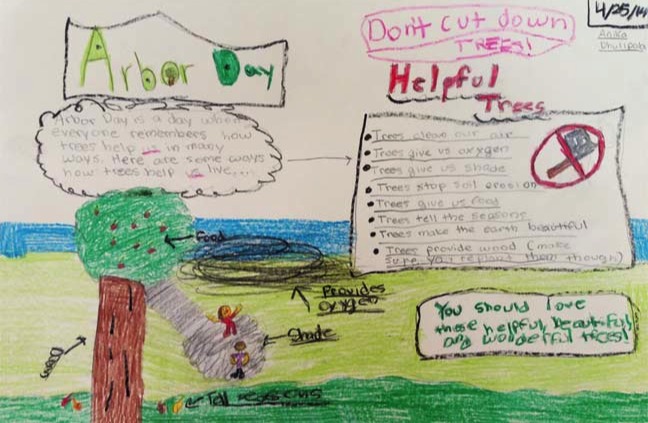 4/25/14
Anika
Dhulipala
Arbor Day
Don't cut down
TREES!
Helpful
Trees
Arbor Day is a day when
everyone remembers how
trees help us in many
ways. Here are some ways
how trees help us live...
Trees clean our air
Trees give us oxygen
Trees give us shade
Trees stop soil erosion
Trees give us food
Trees tell the seasons
Trees make the earth beautiful
Trees provide wood (make
sure you replant them though)
Food
Provides
oxygen
Shade
Tell seasons
You should love
these helpful, beautiful,
and wonderful trees!